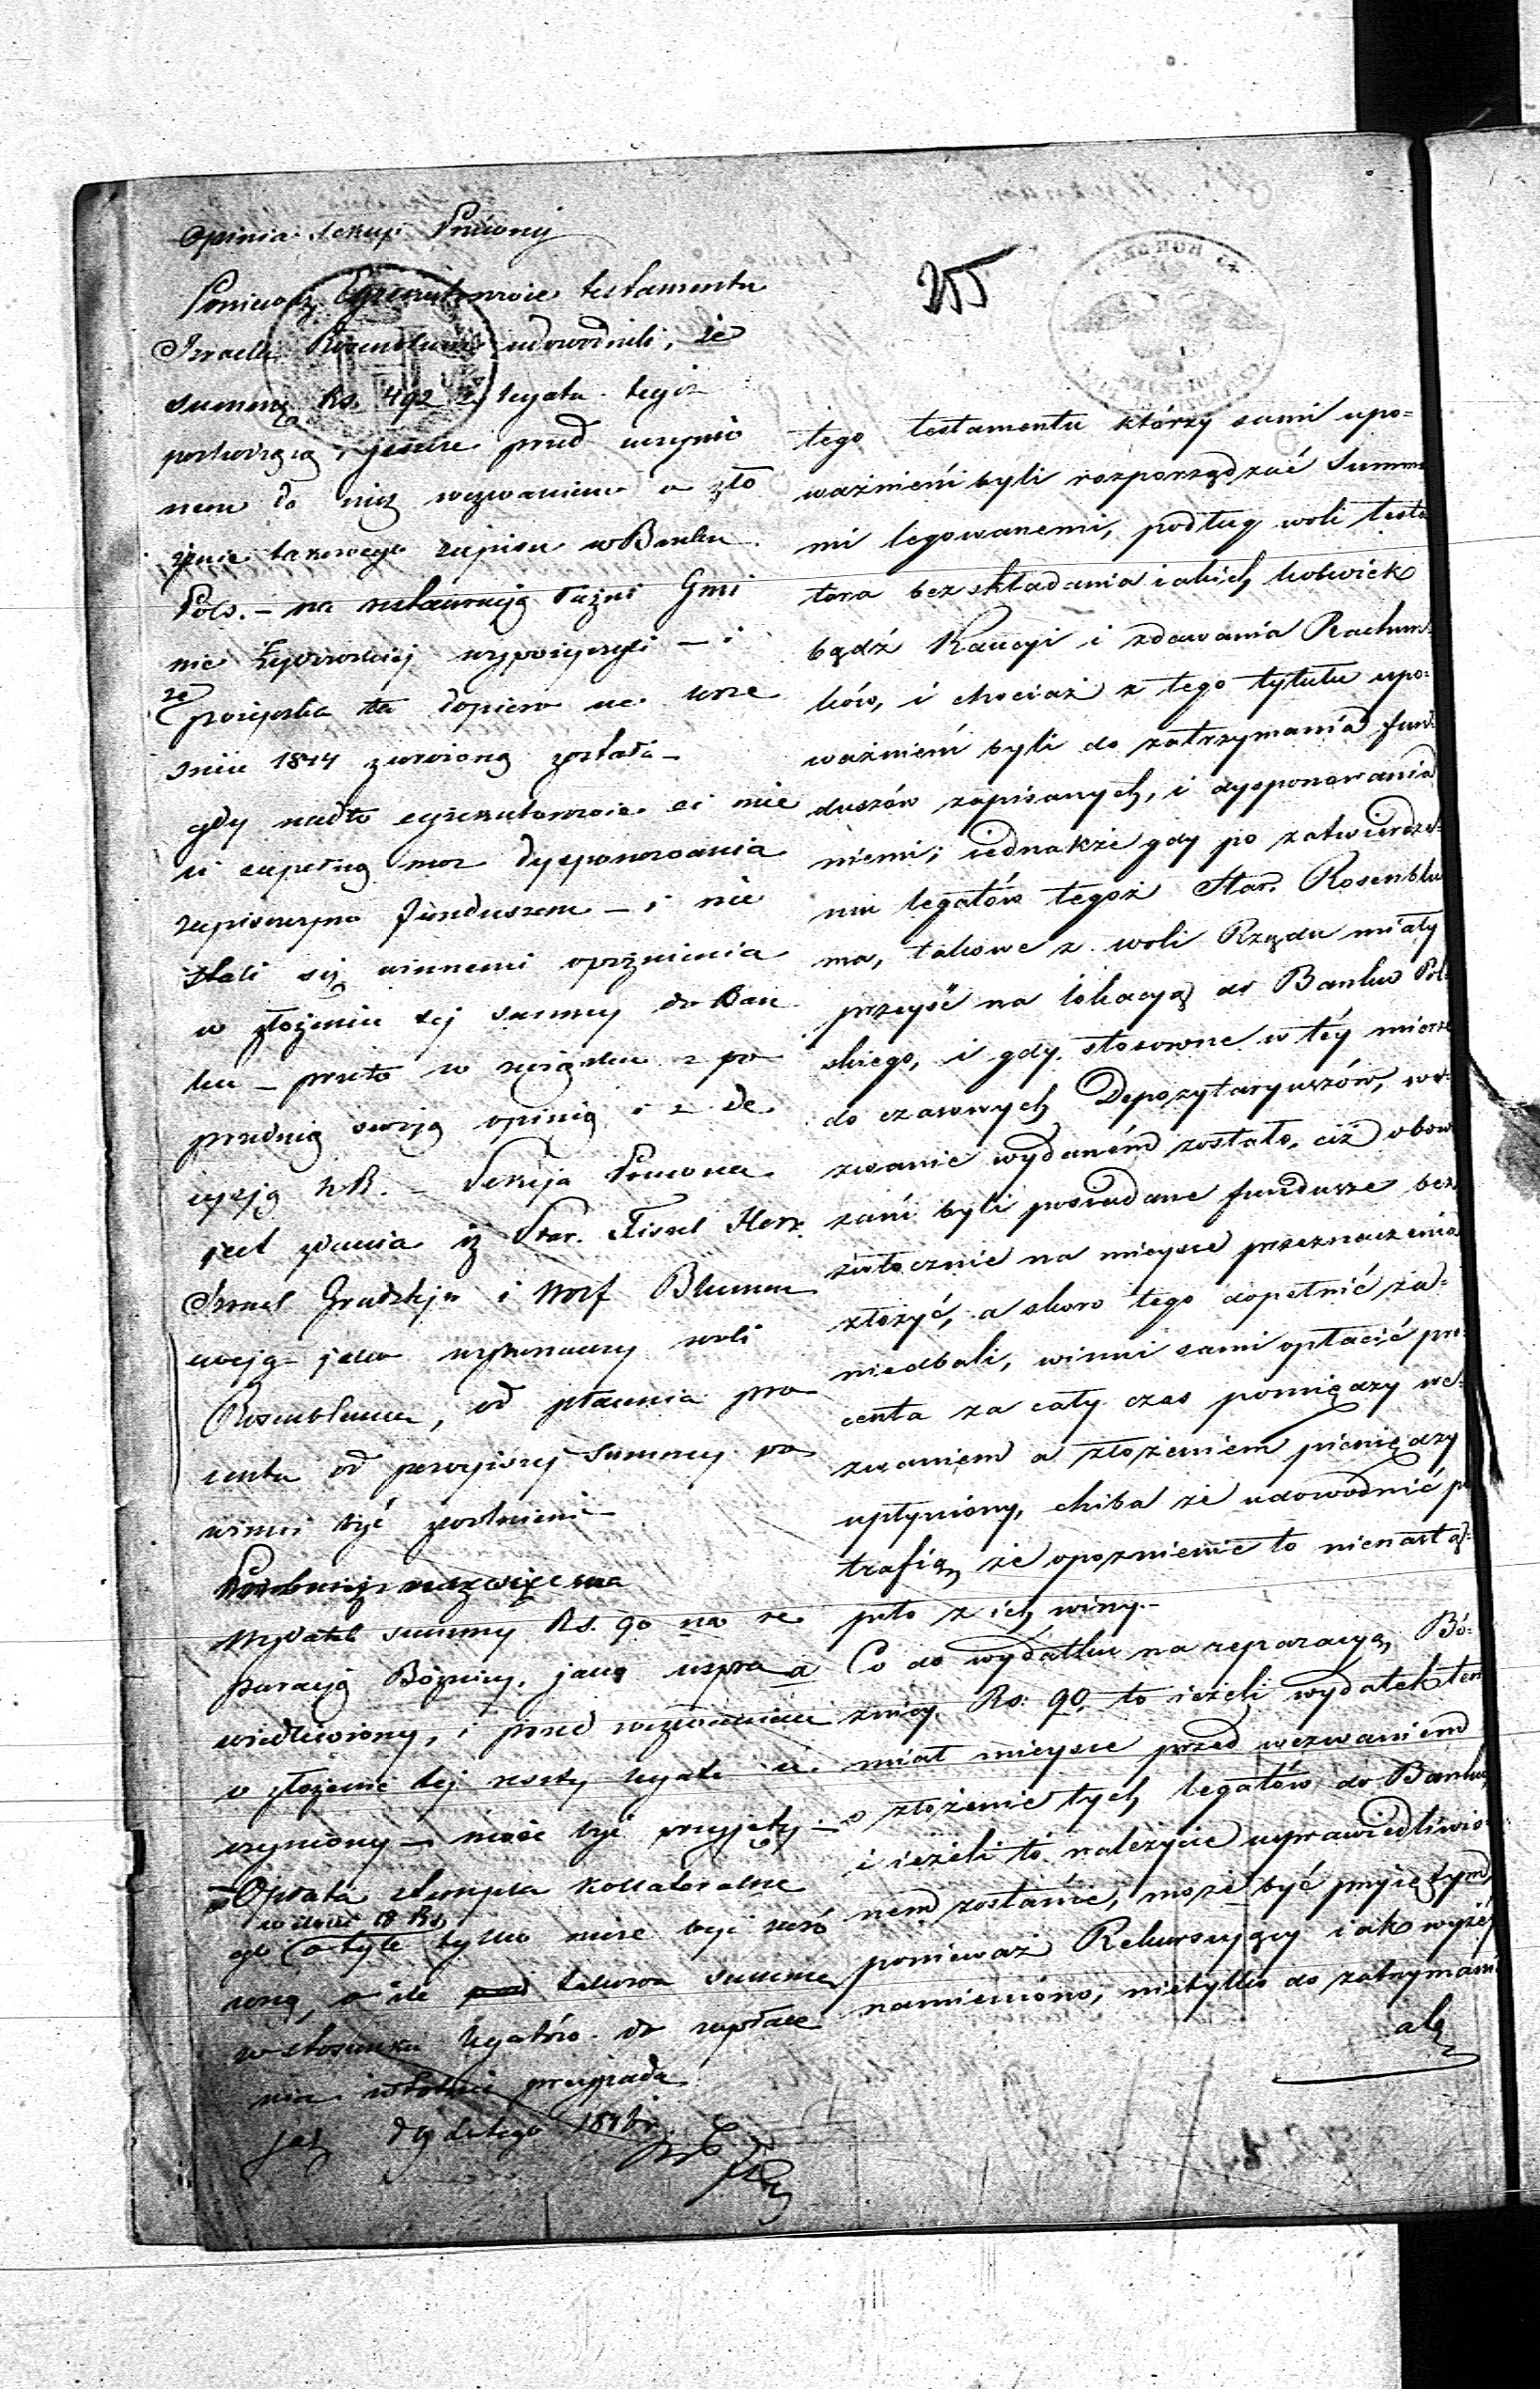 Opinia Sekcyi Prawnej
Ponieważ Egzekutorowie testamentu
Izraela Rozenbluma udowodnili, że
summę Rs. 492 z legatu tegoż
pochodzącą, jeszcze przed uczynio
nem do nich wezwaniem o zło
żenie takowego zapisu w Banku
Pols. – na restauracją Łaźni Gmi
nie Żydowskiej wypożyczyli – i
że pożyczka ta dopiero we Wrze
śniu 1844 zwróconą została –
gdy nadto egzekutorowie ci mie
li zupełną moc dysponowania
zapisanym funduszem – i nie
stali się winnemi opóźnienia
w złożeniu tej summy do Ban
ku – przeto w związku z po
przednią swoją opinią i z de
cyzją KR. – Sekcja Prawna
jest zdania iż Star. Fissel Herz
Izrael Grudzkyn i Wolf Blumen
jako wykonawcy woli
Rosenbluma, od płacenia pro
centu od powyższej summy po
winni być zwolnieni
Wydatek summy Rs. 90 na re
paracją Bóżnicy, jako uspra
wiedliwiony, i przed wezwaniem
o złożenie tej reszty legatu u
czyniony – może być przyjęty –
Opłata stempla kollateralne
w ilości 18 Rs.
go o tyle tylko może być zwró
coną, o ile takowa summa
w stosunku legatów do zapłace
nia istotnie przypada
9 Lutego 184
255
tego testamentu którzy sami upo=
ważnieni byli rozporządzać Summa
mi legowanemi, podług woli testa
tora bez składania iakich kolwiek
bądź Kaucyi i zdawania Rachun=
ków, i chociaż z tego tytułu upo=
ważnieni byli do zatrzymania fun=
duszów zapisanych, i dysponowania
niemi; iednakże gdy po zatwierdze=
niu legatów tegoż Star. Rosenblu
ma, takowe z woli Rządu miały
przejść na lokacyą do Banku Pol=
skiego, i gdy stosowne w téy mierze
do czasowych Depozytaryuszów, we=
zwanie wydaném zostało, ciż obow
zani byli posiadane fundusze bez
zwłocznie na mieysce przeznaczenia
złożyć, a skoro tego dopełnić za=
niedbali, winni sami opłacić pro=
centa za cały czas pomiędzy we=
zwaniem a złożeniem pieniędzy
upłyniony, chiba że udowodnić po
trafią, że opoznienie to nienastą=
piło z ich winy.–
Co do wydatku na reparacyą Bó=
znicy Rs: 90, to ieżeli wydatek ten
miał mieysce przed wezwaniem
o złożenie tych legatów do Banku,
i ieżeli to należycie usprawiedliwio
nem zostanie, może być przyiętym,
ponieważ Rekursuiący iak wyżéy
namieniono, nietylko do zatrzymania
ale